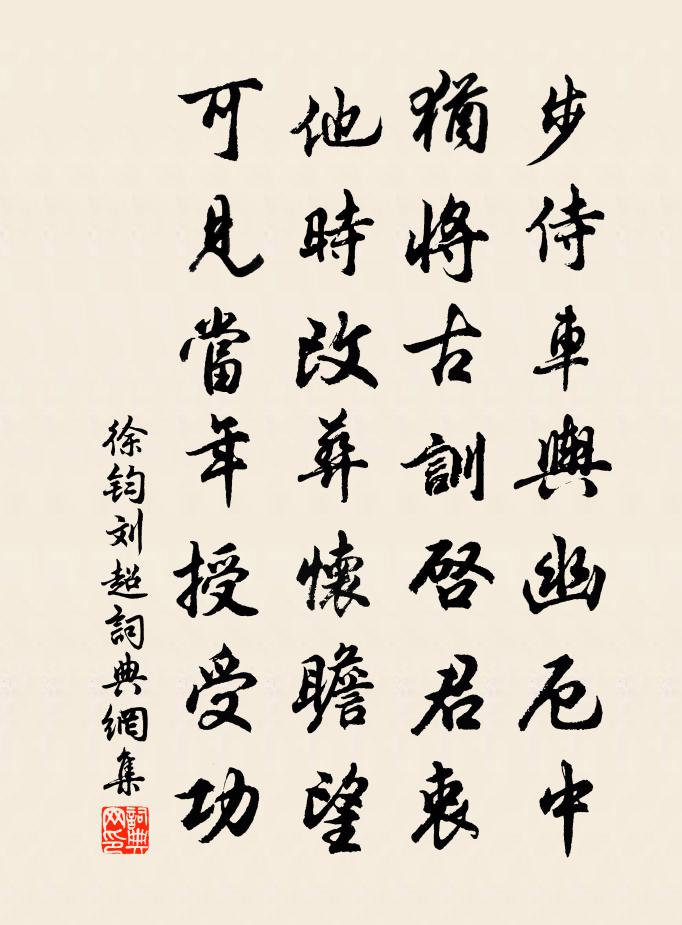 步侍車輿幽厄中
猶將古訓啓君衷
他時改葬懷瞻望
可見當年授受功
徐鈞刘超詞典網集
詞典
网印